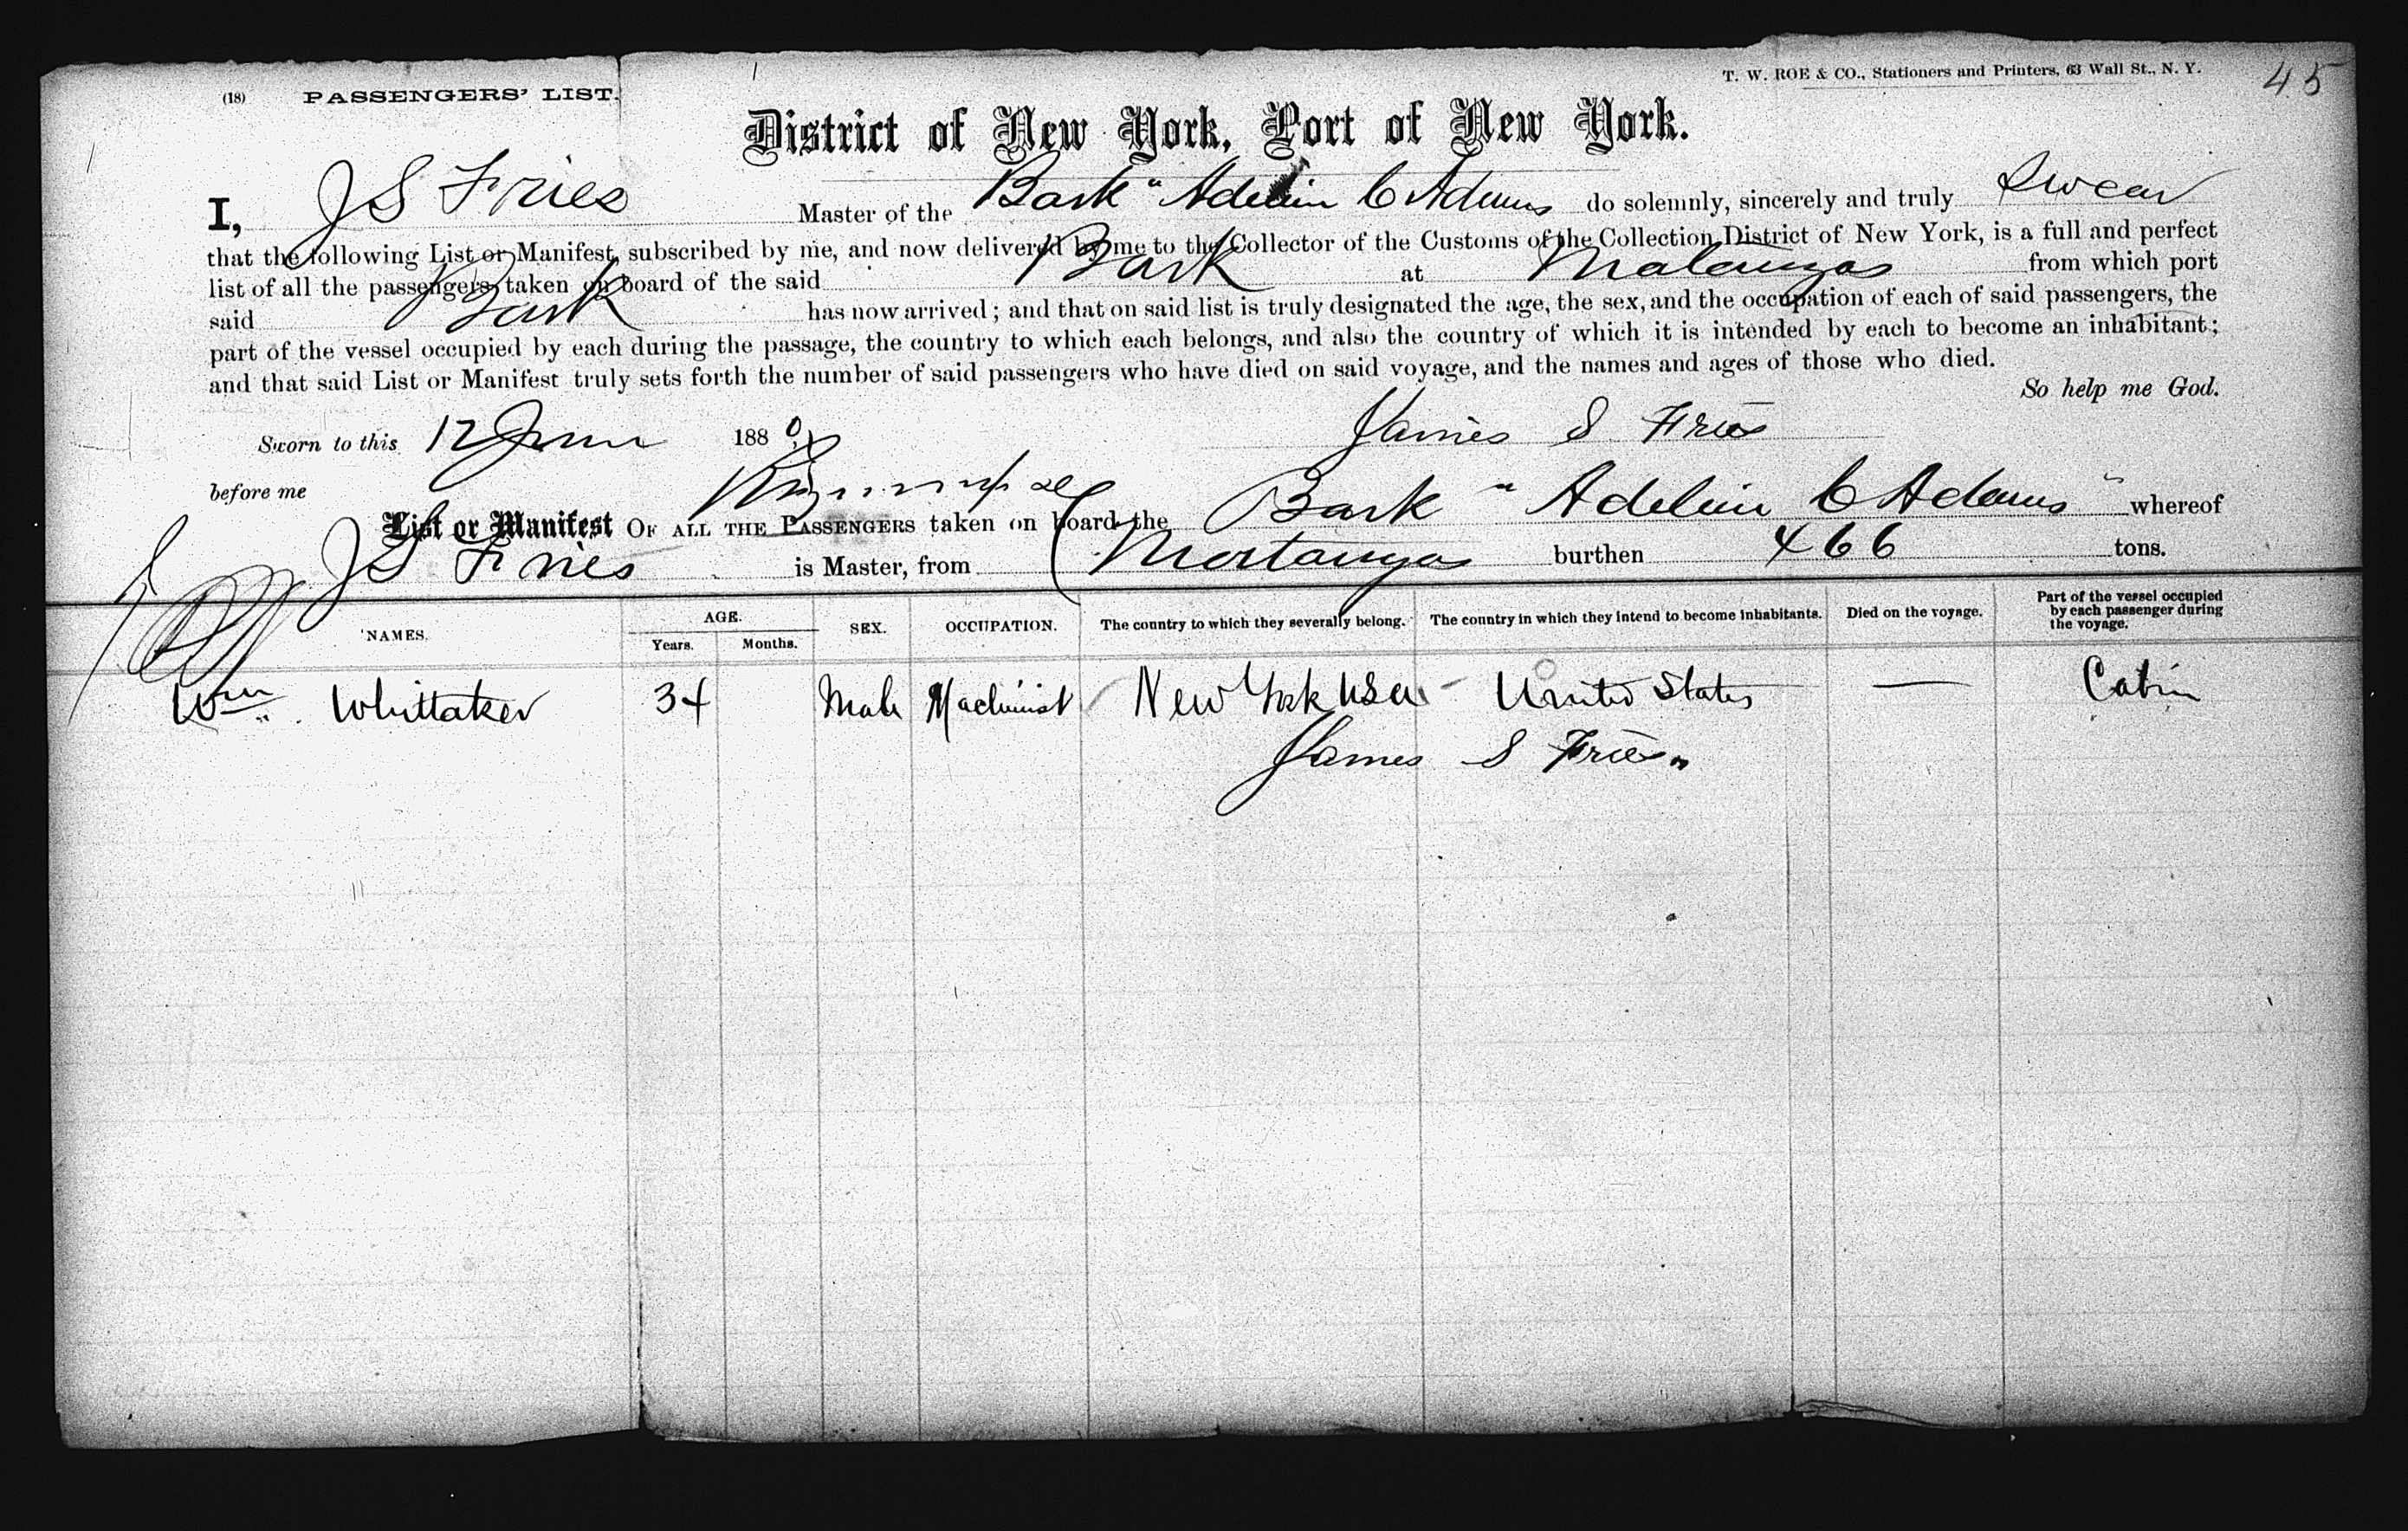 (18) PASSENGERS' LIST.
T. W. ROE & CO., Stationers and Printers, 63 Wall St., N. Y.
45
District of New York, Port of New York.
I, J S Fries Master of the Bark "Adelin C Adams do solemnly, sincerely and truly Swear
that the following List or Manifest, subscribed by me, and now delivered by me to the Collector of the Customs of the Collection District of New York, is a full and perfect
list of all the passengers taken on board of the said Bark at Matanzas from which port
said Bark has now arrived; and that on said list is truly designated the age, the sex, and the occupation of each of said passengers, the
part of the vessel occupied by each during the passage, the country to which each belongs, and also the country of which it is intended by each to become an inhabitant;
and that said List or Manifest truly sets forth the number of said passengers who have died on said voyage, and the names and ages of those who died.
So help me God.
Sworn to this 12 June 1880 James S Fries
before me
List or Manifest OF ALL THE PASSENGERS taken on board the Bark "Adelin C Adams" whereof
J S Fries is Master, from Mortanzas burthen 466 tons.
NAMES. AGE. Years. Months. SEX. OCCUPATION. The country to which they severally belong. The country in which they intend to become inhabitants. Died on the voyage. Part of the vessel occupied by each passenger during the voyage.
Wm Whittaker 34 Male Machinist New York USA United States — Cabin
James S Fries